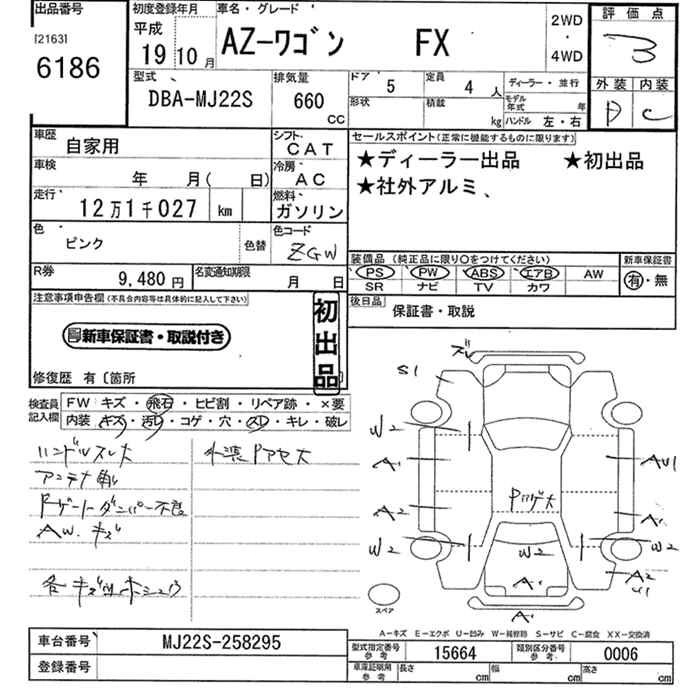 出品番号
[2163]
6186
初度登録年月
平成
19 10月
車名・グレード
AZ-ワゴン FX
2WD
・
4WD
評価点
3
外装 内装
D C
型式
DBA-MJ22S
排気量
660
CC
ドア
5
定員
4 人
形状
積載
kg
ディーラー・並行
モデル年式 年
ハンドル 左・右
車歴
自家用
シフト
CAT
車検
年 月( 日)
冷房
AC
走行
12万1千027 km
燃料
ガソリン
色
ピンク
色替
色コード
ZGW
R券
9,480円
名変通知期限
月 日
セールスポイント(正常に機能するものに限ります)
★ディーラー出品 ★初出品
★社外アルミ、
装備品(純正品に限り〇をつけてください)
新車保証書
PS PW ABS エアB AW
SR ナビ TV カワ
有・無
後日品
保証書・取説
注意事項申告欄(不具合内容等は具体的に記入して下さい)
新車保証書・取説付き
初出品
修復歴 有〔箇所
検査員記入欄
FW キズ・飛石・ヒビ割・リペア跡・×要
内装 キズ・汚れ・コゲ・穴・スレ・キレ・破レ
ハンドルスレ大
アンテナ
ダンパー不良
AW. キズ
外装
各キズ
ズレ
S1
W2
A1
A2
W2
AU1
A1
W2
A2
U1
W2
A1
A1
スペア
A-キズ E-エクボ U-凹み W-補修跡 S-サビ C-腐食 XX-交換済
車台番号
MJ22S-258295
登録番号
型式指定番号
参考
15664
類別区分番号
参考
0006
車庫証明用
参考
長さ cm
幅 cm
高さ cm